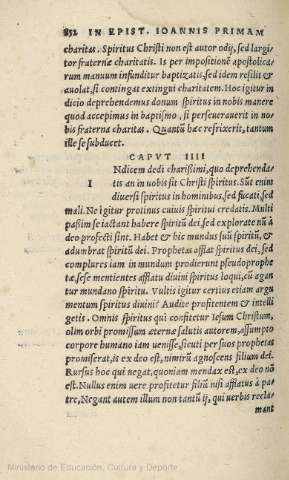 852 IN EPIST. IOANNIS PRIMAM
charitas. Spiritus Christi non est autor odij, sed largi/
tor fraternæ charitatis. Is per impositionē apostolica/
rum manuum infunditur baptizatis, sed idem resilit &
auolat, si contingat extingui charitatem. Hoc igitur in
dicio deprehendemus donum spiritus in nobis manere
quod accepimus in baptismo, si perseuerauerit in no/
bis fraterna charitas. Quantū hæc refrixerit, tantum
ille se subducet.
CAPVT IIII
INdicem dedi charissimi, quo deprehenda/
tis an in uobis sit Christi spiritus. Sūt enim
diuersi spiritus in hominibus, sed fucati, sed
mali. Ne igitur protinus cuiuis spiritui credatis. Multi
passim se iactant habere spiritū dei, sed explorate nū à
deo profecti sint. Habet & hic mundus suū spiritū, &
adumbrat spiritū dei. Prophetas afflat spiritus dei, sed
complures iam in mundum prodierunt pseudoprophe
tæ, sese mentientes afflatu diuini spiritus loqui, cū agan
tur mundano spiritu. Vultis igitur certius etiam argu
mentum spiritus diuini? Audite profitentem & intelli
getis. Omnis spiritus qui confitetur Iesum Christum,
olim orbi promissum æternæ salutis autorem, assumpto
corpore humano iam uenisse, sicuti per suos prophetas
promiserat, is ex deo est, nimirū agnoscens filium dei.
Rursus hoc qui negat, quoniam mendax est, ex deo nō
est. Nullus enim uere profitetur filiū nisi afflatus à pa/
tre, Negant autem illum non tantū ij, qui uerbis recla/
mant
Ministerio de Educación, Cultura y Deporte